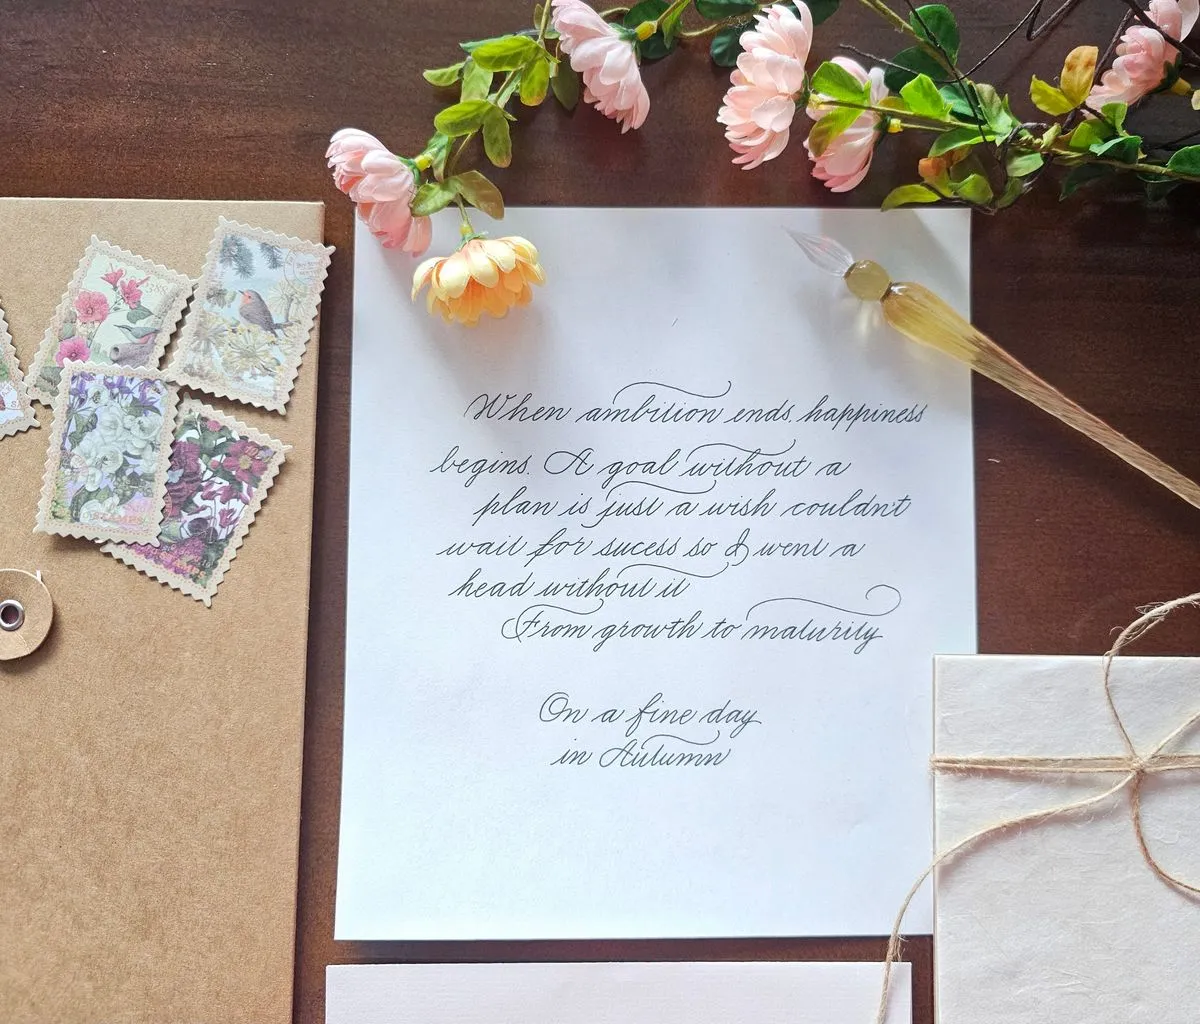 When ambition ends, happiness
begins. A goal without a
plan is just a wish couldn't
wait for sucess so I went a
head without it
From growth to maturity
On a fine day
in Autumn